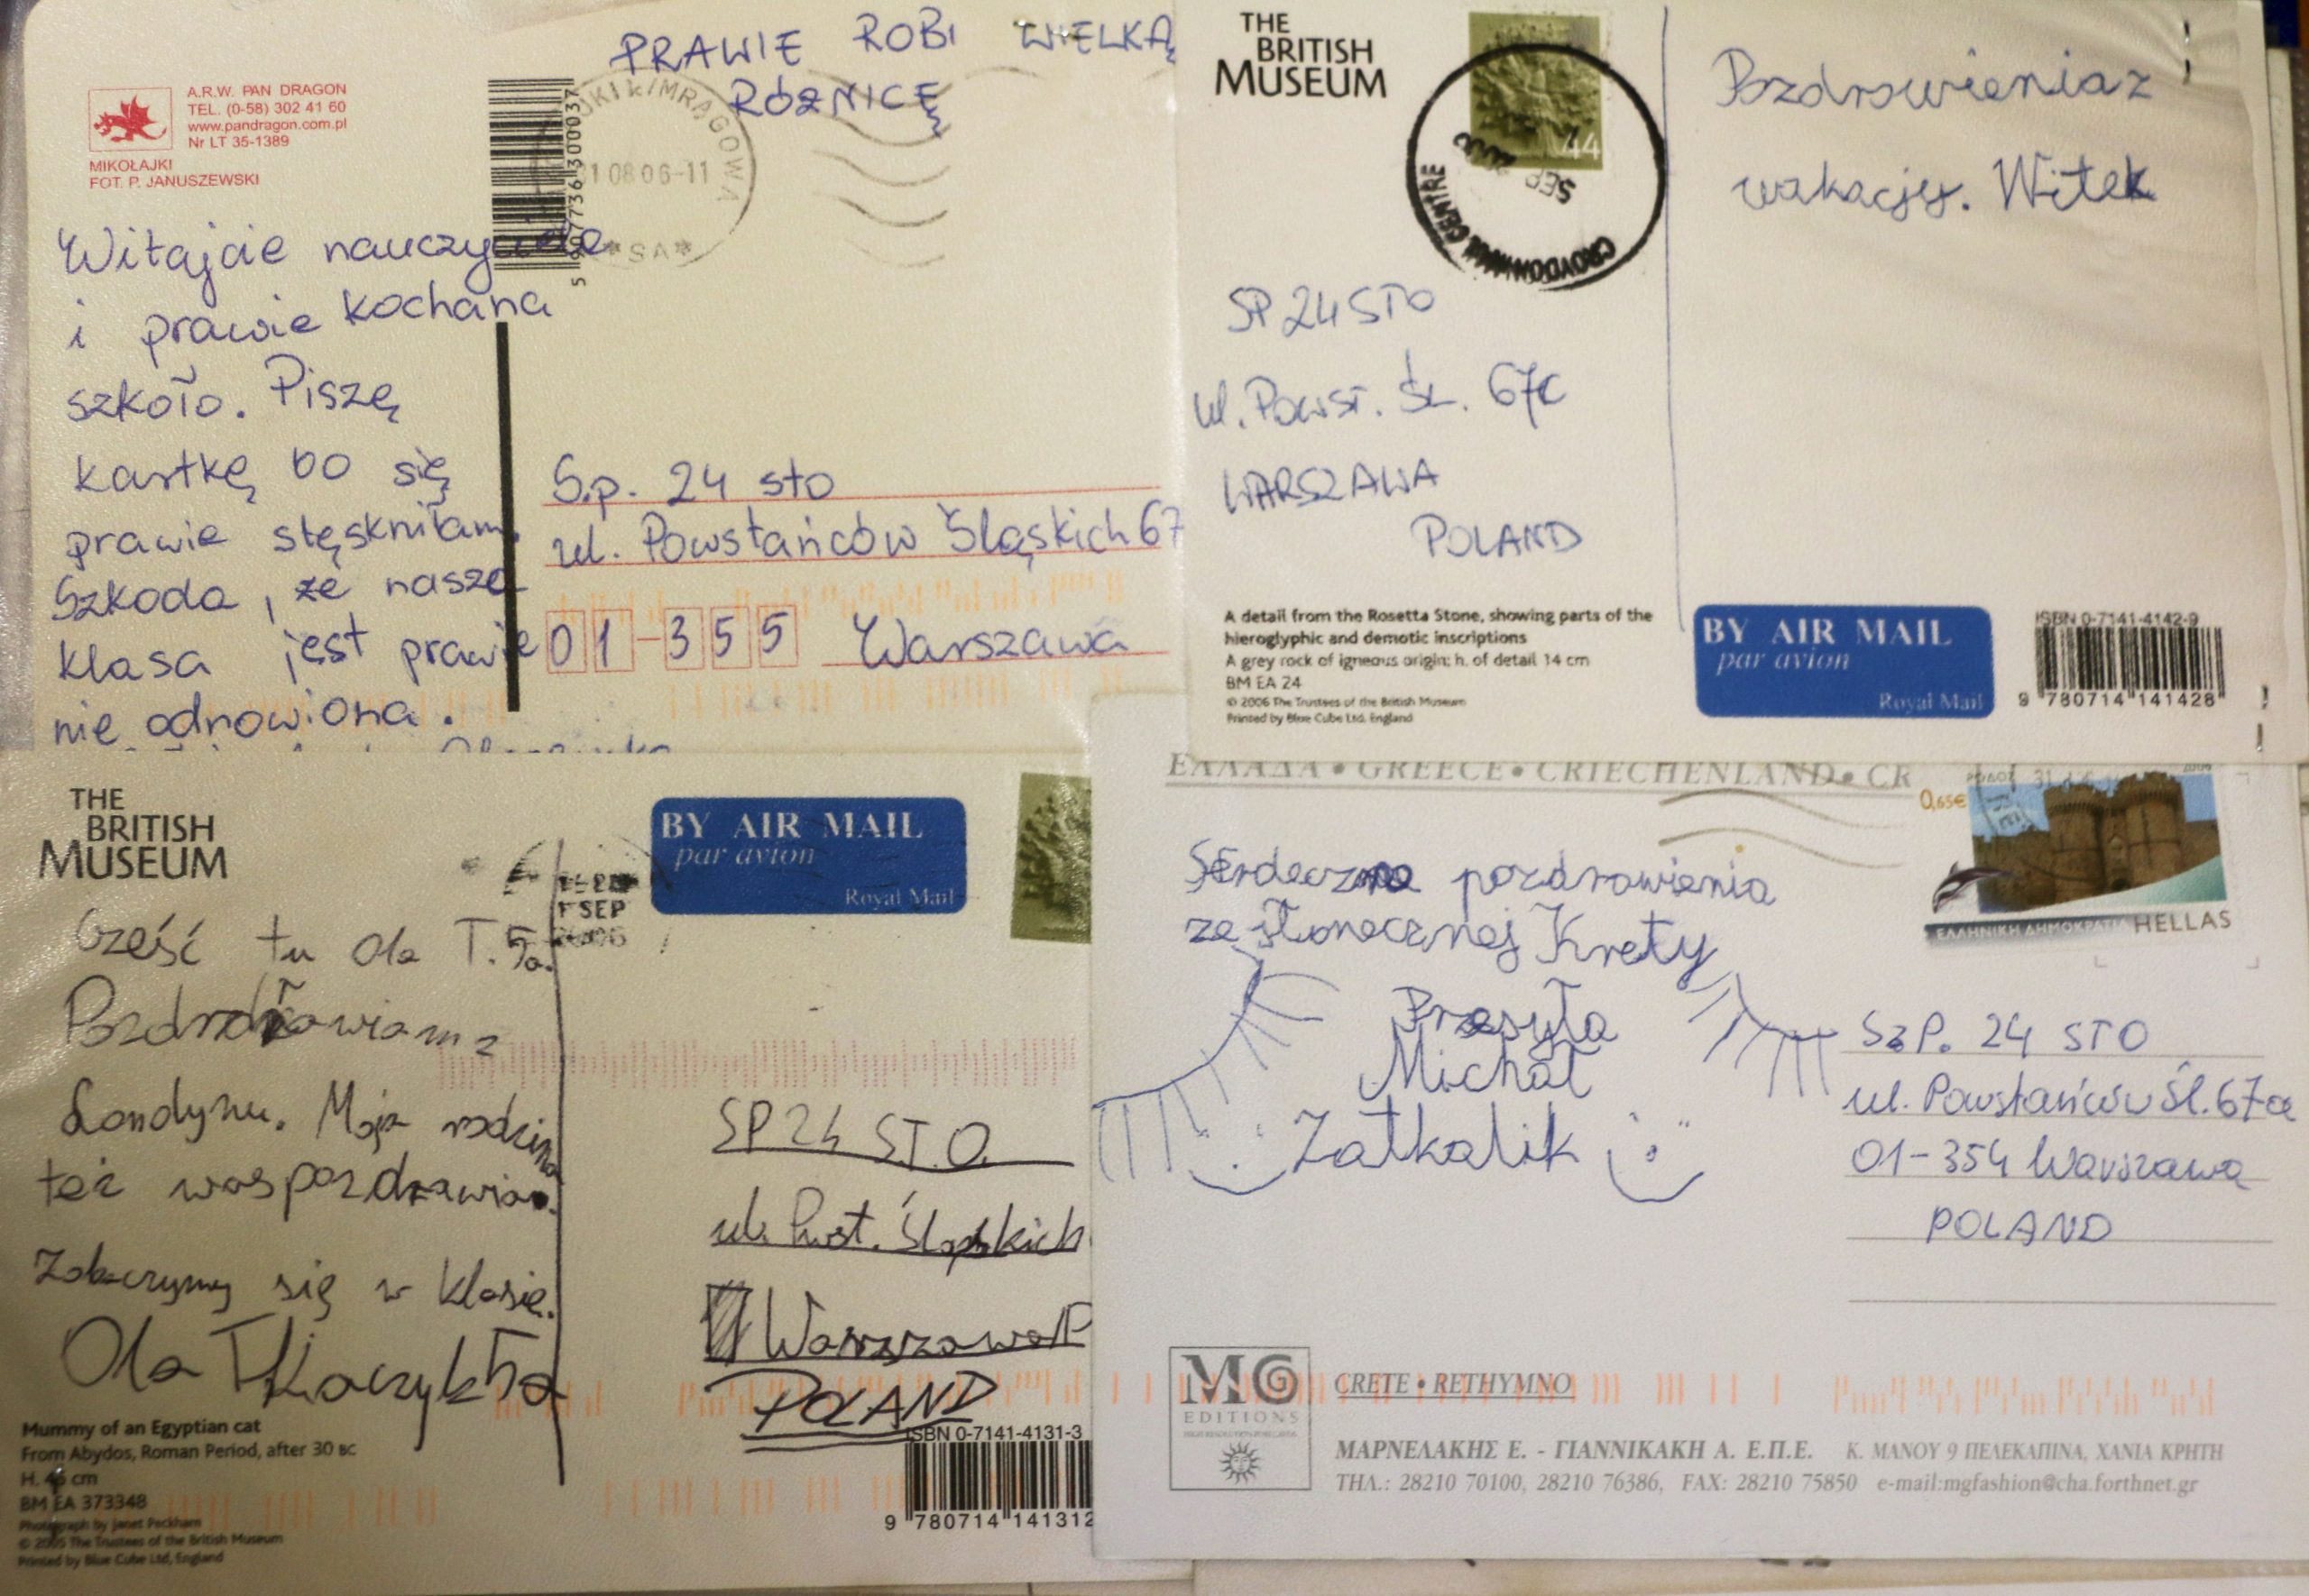 PRAWIE ROBI WIELKĄ
RÓŻNICĘ
A.R.W. PAN DRAGON
TEL. (0-58) 302 41 60
www.pandragon.com.pl
Nr LT 35-1389
MIKOŁAJKI
FOT. P. JANUSZEWSKI
5 907736 300037
01 08 06-11
*SA*
Witajcie
i prawie kochana
szkoło. Piszę
kartkę bo się
prawie stęskniłam.
Szkoda, że nasza
klasa jest prawie
nie odnowiona.
S.p. 24 sto
ul. Powstańców Śląskich 67
01-355 Warszawa
THE
BRITISH
MUSEUM
44
SEP
CROYDON CENTRE
Pozdrowienia z
wakacjy. Witek
SP 24 STO
ul. Powst. Śl. 67C
WARSZAWA
POLAND
A detail from the Rosetta Stone, showing parts of the
hieroglyphic and demotic inscriptions
A grey rock of igneous origin; h. of detail 14 cm
BM EA 24
© 2006 The Trustees of the British Museum
Printed by Blue Cube Ltd, England
BY AIR MAIL
par avion
Royal Mail
ISBN 0-7141-4142-9
9 780714 141428
THE
BRITISH
MUSEUM
BY AIR MAIL
par avion
Royal Mail
SEP
Cześć tu Ola T. 5a.
Pozdrawiam z
Londynu. Moja rodzina
też was pozdrawia.
Zobaczymy się w klasie.
Ola Tkaczykła
SP 24 S.T.O.
ul. Powst. Śląskich
Warszawa
POLAND
Mummy of an Egyptian cat
From Abydos, Roman Period, after 30 BC
H. 46 cm
BM EA 373348
Photograph by Janet Peckham
© 2005 The Trustees of the British Museum
Printed by Blue Cube Ltd, England
ISBN 0-7141-4131-3
9 780714 141312
ΕΛΛΑΔΑ • GREECE • GRIECHENLAND • GR
0,65€
ΕΛΛΗΝΙΚΗ ΔΗΜΟΚΡΑΤΙΑ HELLAS
Serdeczne pozdrowienia
ze słonecznej Krety
Przesyła
Michał
Zatkalik
SzP. 24 STO
ul. Powstańców Śl. 67a
01-354 Warszawa
POLAND
MG
EDITIONS
CRETE • RETHYMNO
ΜΑΡΝΕΛΑΚΗΣ Ε. - ΓΙΑΝΝΙΚΑΚΗ Α. Ε.Π.Ε. Κ. ΜΑΝΟΥ 9 ΠΕΛΕΚΑΠΙΝΑ, ΧΑΝΙΑ ΚΡΗΤΗ
ΤΗΛ.: 28210 70100, 28210 76386, FAX: 28210 75850 e-mail:mgfashion@cha.forthnet.gr